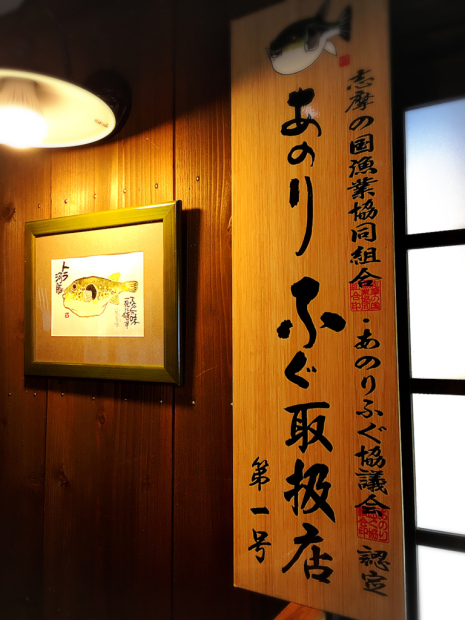 志摩の国漁業協同組合・あのりふぐ協議会 認定
あのりふぐ取扱店
第一号
トラ河豚